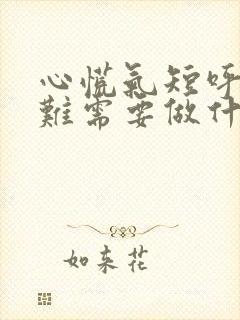 心慌氣短呼
難需要做什
如来花